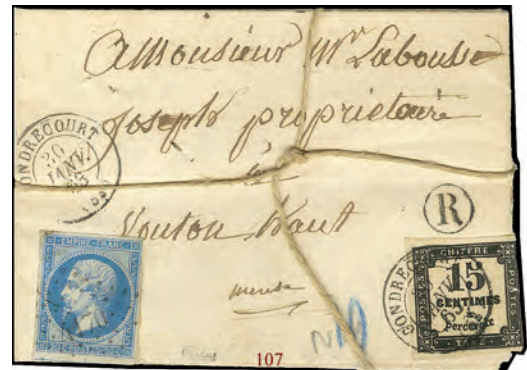 AMonsieur Mr Labousse
Joseph proprietaire
à
Vouton haut
meuse
GONDRECOURT
30
JANV.
63
(53)
R
EMPIRE FRANC
20 C POSTES 20 C
CHIFFRE
POSTES
15
CENTIMES
à
percevoir
TAXE
POSTES
GONDRECOURT
107